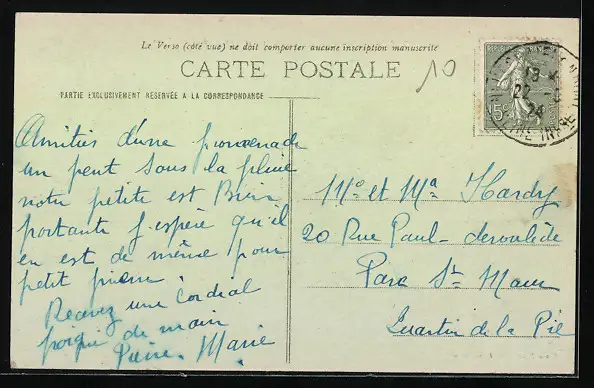 Le Verso (côté vue) ne doit comporter aucune inscription manuscrite
CARTE POSTALE
10
PARTIE EXCLUSIVEMENT RÉSERVÉE A LA CORRESPONDANCE
Amitiés d'une promenade
un peut sous la pluie
notre petite est Bien
portante j'espère qu'il
en est de même pour
petit pierre
Recevez une Cordial
poigné de main
Pierre. Marie
Mr et Me Hardy
20 Rue Paul-deroulède
Parc St Maur
Quartier de la Pie
15c
22
24